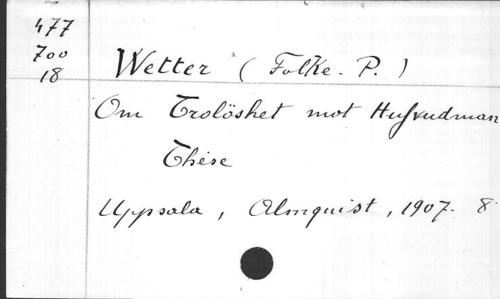 477
700
18
Wetter (Folke. P.)
Om Trolöshet mot Hufvudman
Thèse
Uppsala, Almquist, 1907. 8